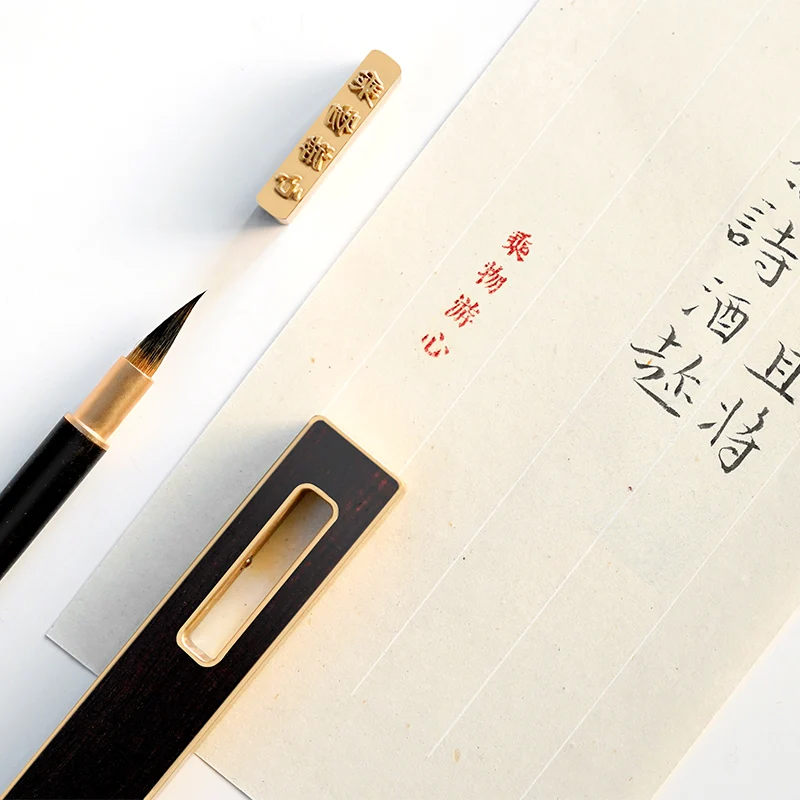 乘物游心
乘物游心
且将
詩酒趂